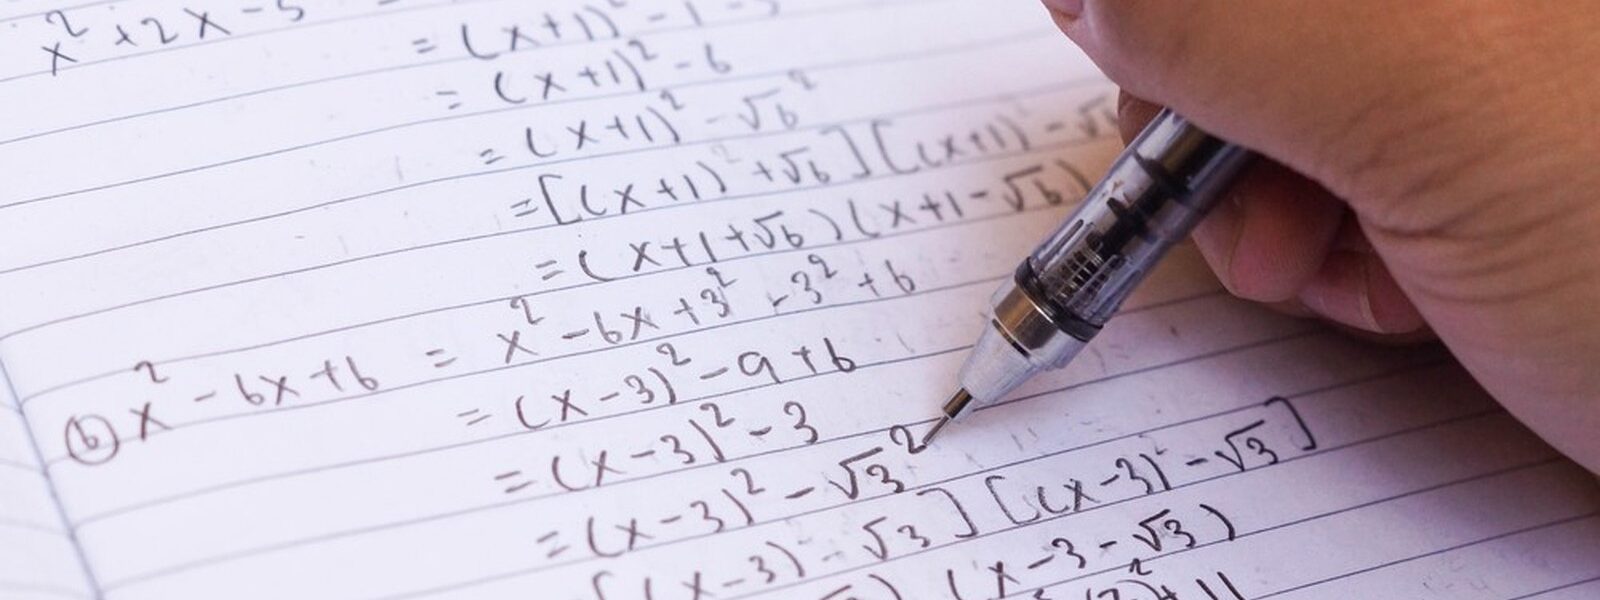 x² + 2x - 5
= (x+1)² - 1 - 5
= (x+1)² - 6
= (x+1)² - √6²
= [(x+1)² + √6] [(x+1)² - √6
= (x+1+√6)(x+1-√6)
(b) x² - 6x + 6 = x² - 6x + 3² - 3² + 6
= (x-3)² - 9 + 6
= (x-3)² - 3
= (x-3)² - √3²
[(x-3)² - √3] [(x-3)² - √3]
(x-3-√3)